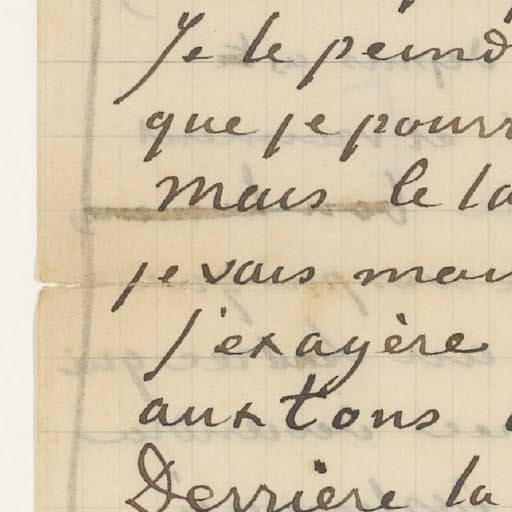 Je le peind
que je pourr
Mais le ta
je vais mai
j'exagère
aux tons
Derrière la